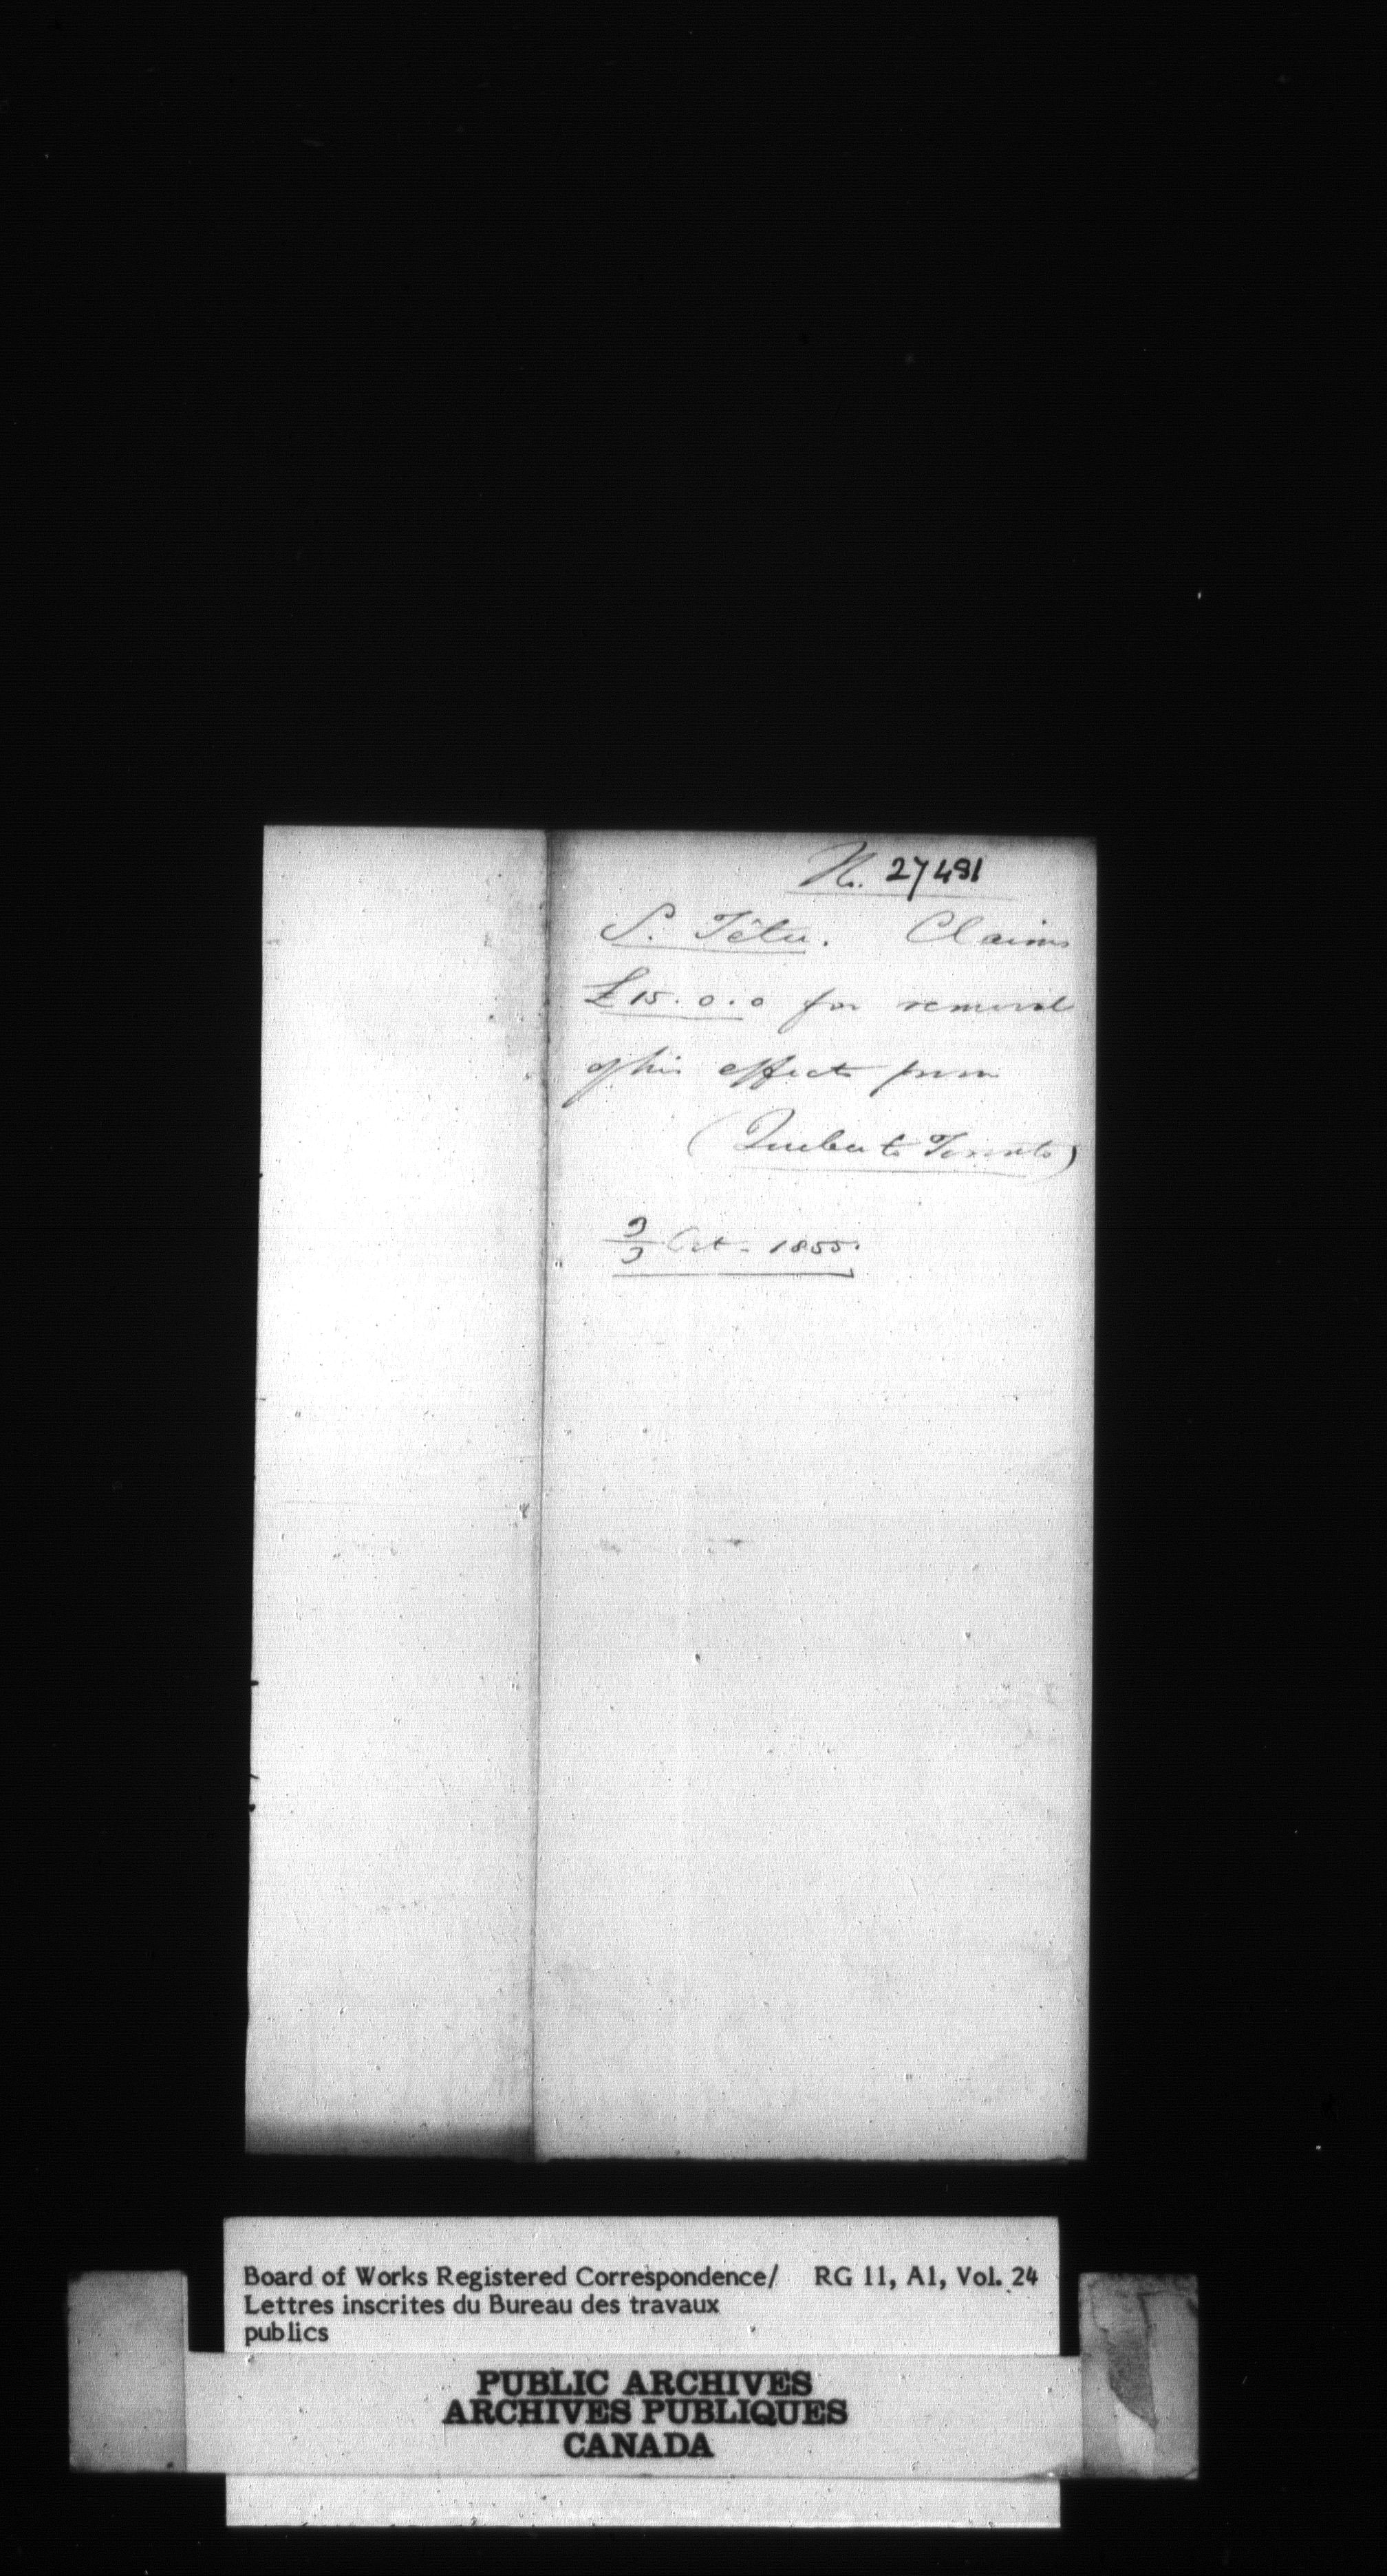 No. 27481
S. Têtu. Claims
£15.0.0 for removal
of his effects from
(Quebec to Toronto)
3/3 Oct. 1855.
Board of Works Registered Correspondence/ RG 11, A1, Vol. 24
Lettres inscrites du Bureau des travaux
publics
PUBLIC ARCHIVES
ARCHIVES PUBLIQUES
CANADA